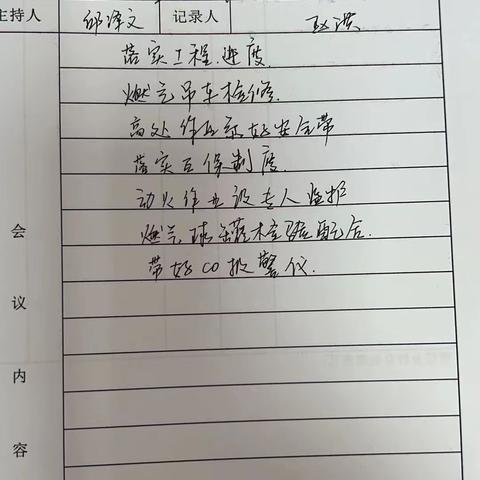 主持人 邱泽文 记录人 赵洪
落实工程进度.
燃气吊车检修.
高处作业系好安全带
落实互保制度.
动火作业设专人监护
燃气球罐检验配合.
带好CO报警仪.
会议内容